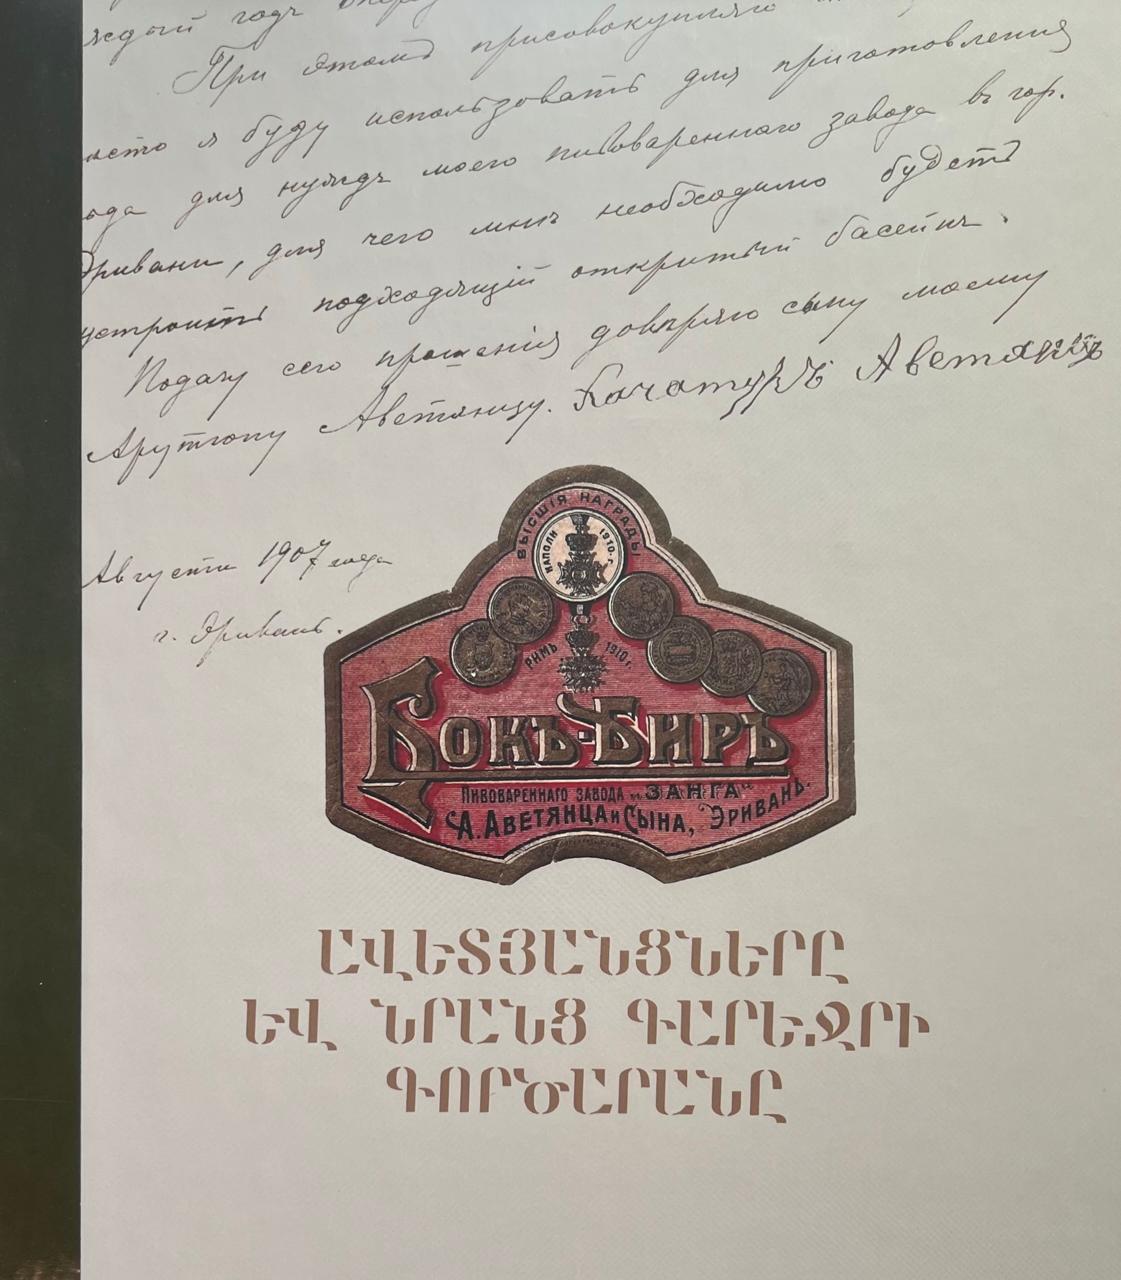 ждый годъ впередъ
При этомъ присовокупляю
место я буду использовать для приготовления
ода для нуждъ моего пивовареннаго завода въ гор.
Эривани, для чего мнѣ необходимо будетъ
устроить подходящій открытый басейнъ.
Подачу сего прошенія довѣряю сыну моему
Арутюну Аветянцу. Хачатуръ Аветянцъ
Августа 1907 года
г. Эривань.
ВЫСШІЯ НАГРАДЫ
НАПОЛИ 1910 г.
РИМЪ 1910 г.
БОКЪ-БИРЪ
ПИВОВАРЕННАГО ЗАВОДА „ЗАНГА“
А. АВЕТЯНЦА и СЫНА, ЭРИВАНЬ.
ԱՎԵՏՅԱՆՑՆԵՐԸ
ԵՎ ՆՐԱՆՑ ԳԱՐԵՋՐԻ
ԳՈՐԾԱՐԱՆԸ